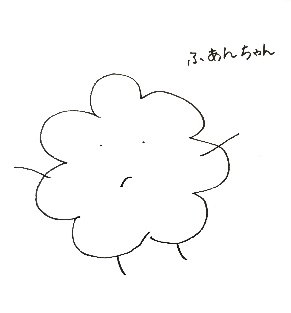 ふあんちゃん